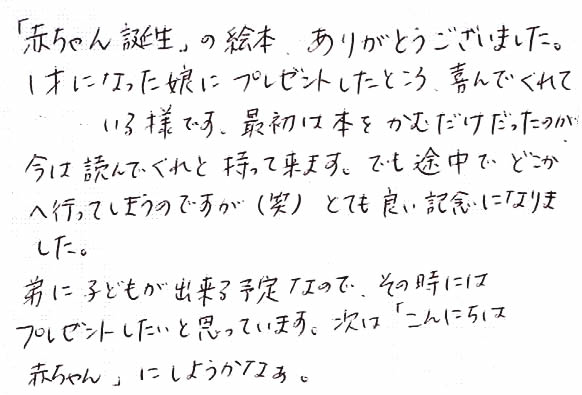 「赤ちゃん誕生」の絵本、ありがとうございました。
1才になった娘にプレゼントしたところ、喜んでくれて
いる様です、最初は本をかむだけだったのが
今は読んでくれと持って来ます。でも途中でどこか
へ行ってしまうのですが（笑）とても良い記念になりま
した。
弟に子どもが出来る予定なので、その時には
プレゼントしたいと思っています。次は「こんにちは
赤ちゃん」にしようかなぁ。